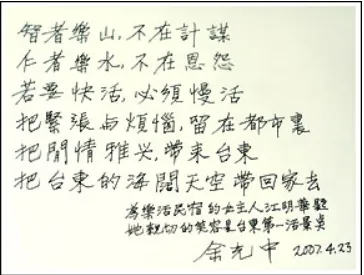 智者樂山,不在計謀
仁者樂水,不在恩怨
若要快活,必須慢活
把緊張与煩惱,留在都市裏
把閒情雅兴,帶來台東
把台東的海闊天空帶回家去
為樂活民宿的女主人江明華題
她親切的笑容是台東第一活景点
余光中 2007.4.23